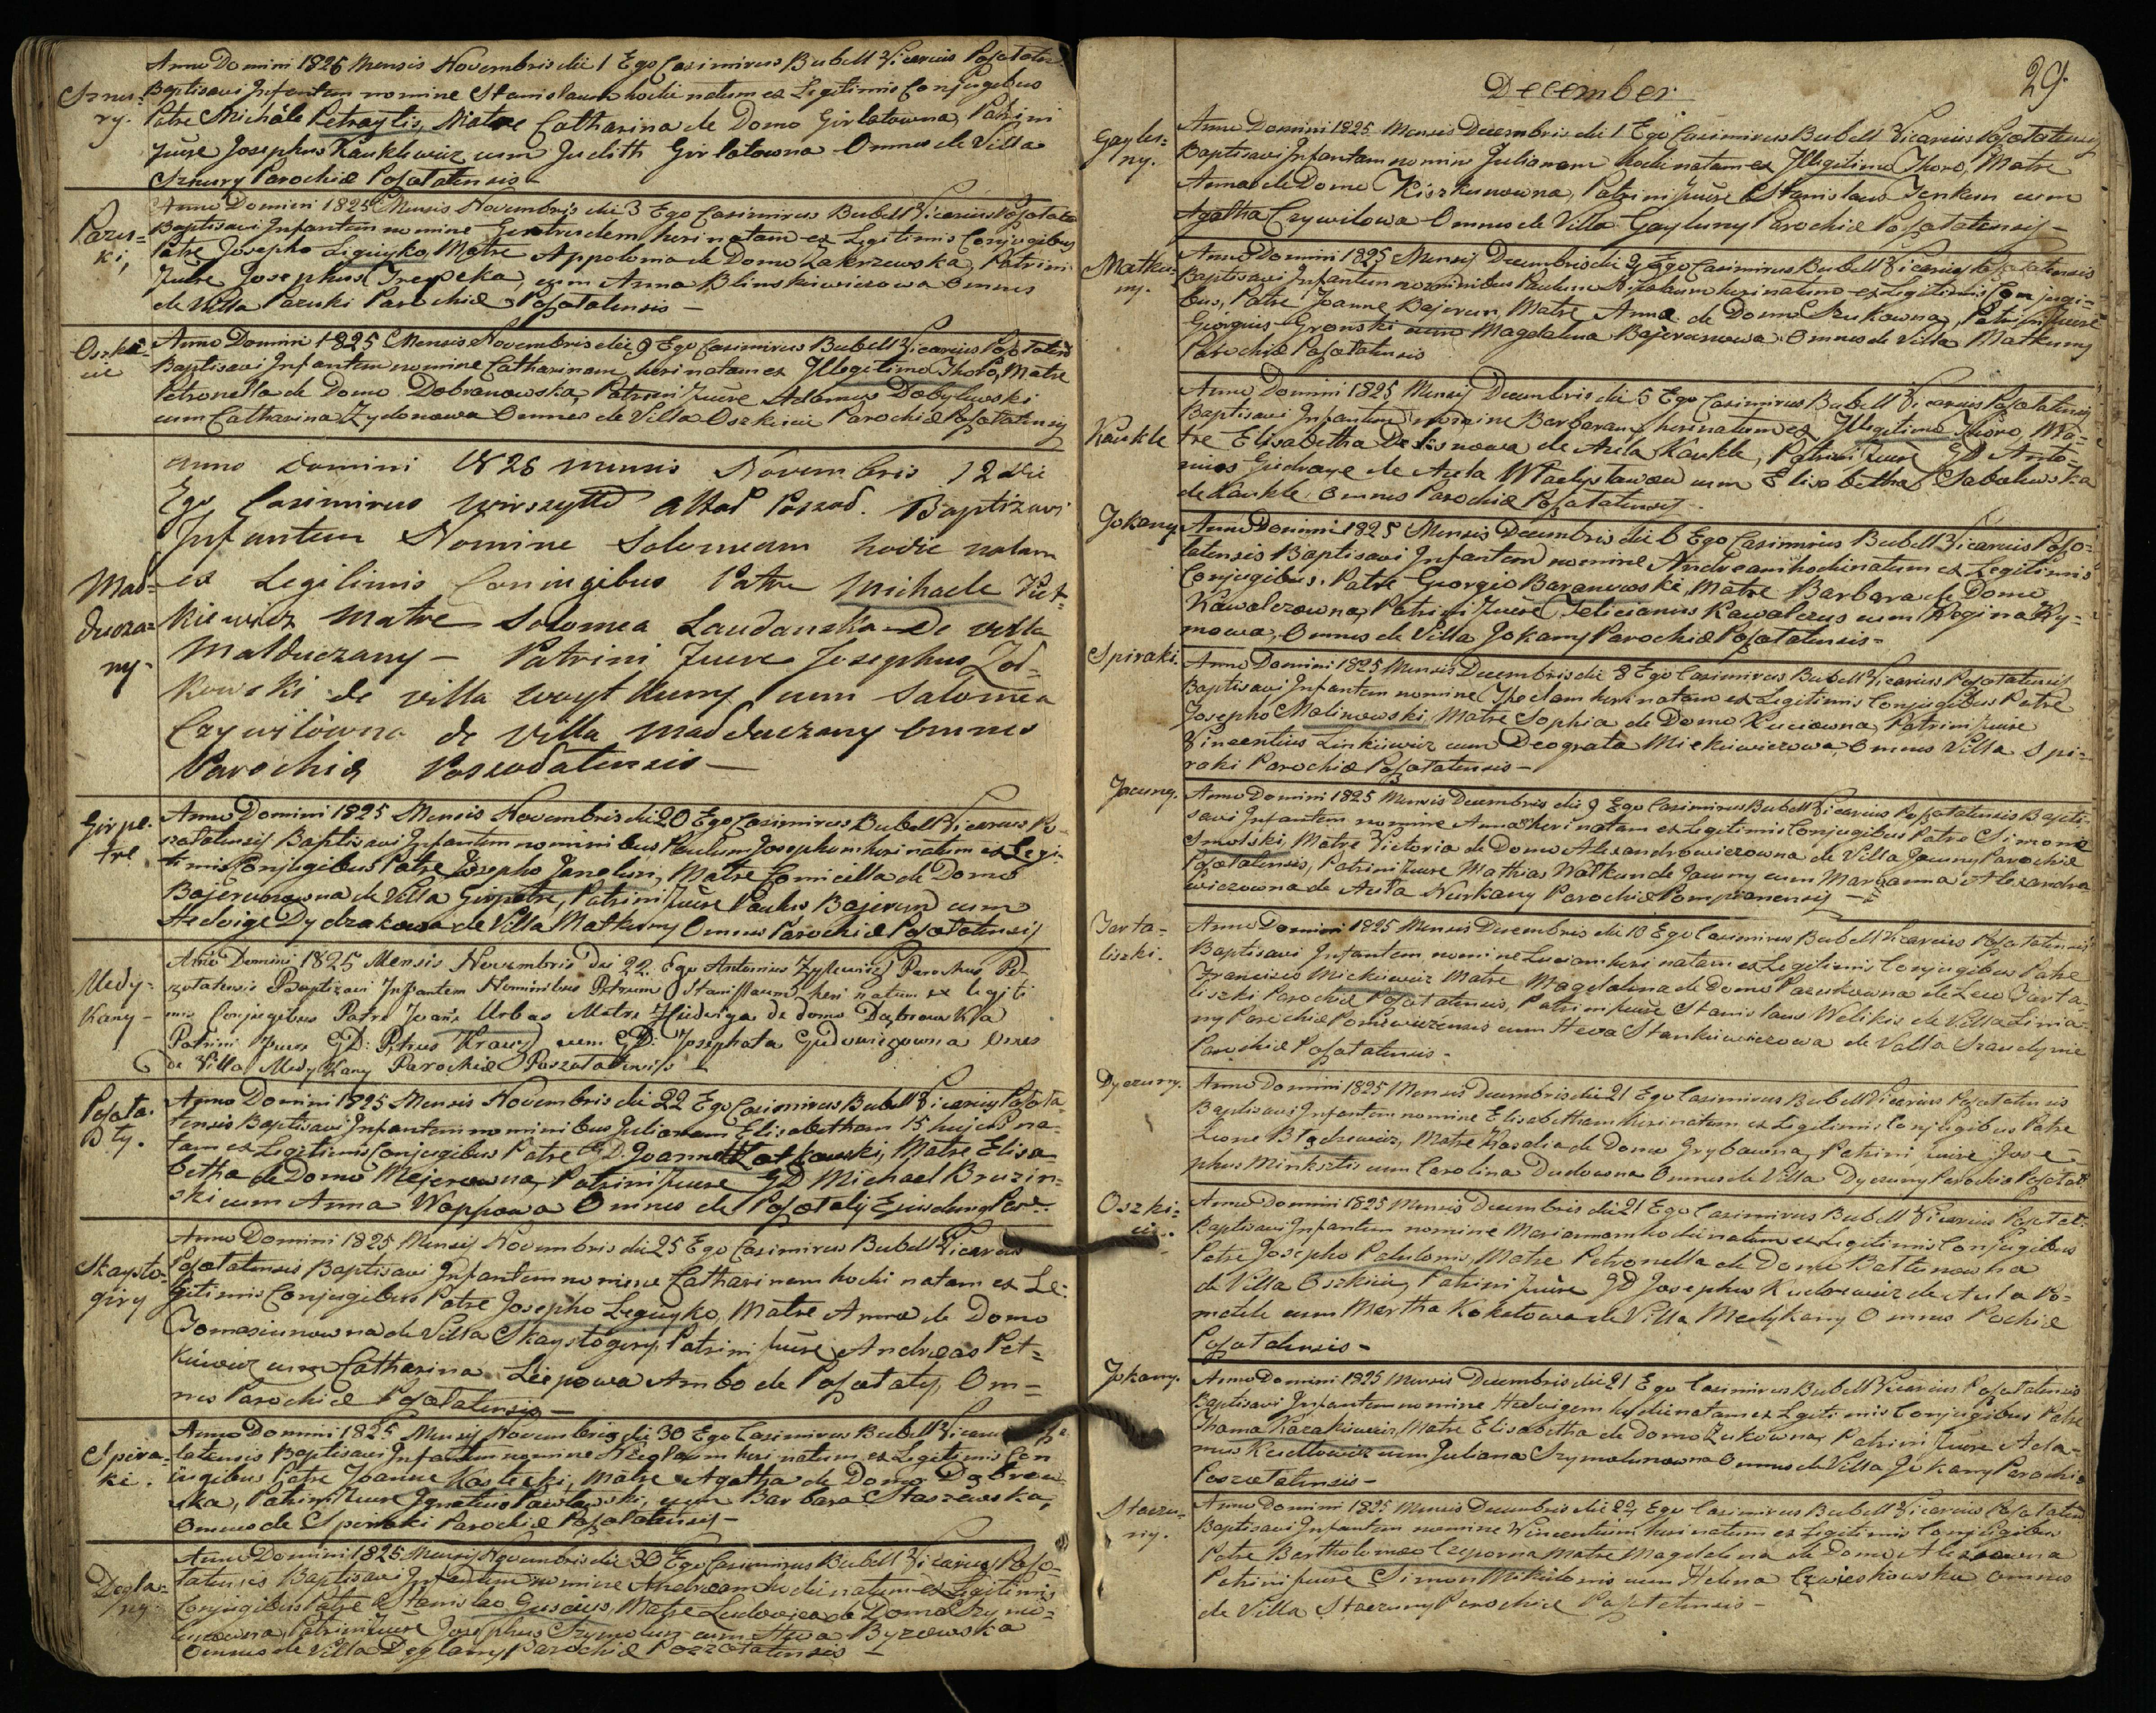 Sznu-
ry.
Anno Domini 1825 Mensis Novembris die 1 Ego Casimirus Bubell Vicarius
Baptisavi Infantem nomine Stanislaum hodie natum ex Legitimis Conjugibus
Patre Michäle Petraytis, Matre Catharina de Domo Girlatowna, Patrini
fuere Josephus Kauklewicz cum Judith Girlatowna Omnes de Villa
Sznury Parochiæ Posotatensis
Pazu-
ki,
Anno Domini 1825 Mensis Novembris die 3 Ego Casimirus Bubell Vicarius
Baptisavi Infantem nomine Gertrudem heri natam ex Legitimis Conjugibus
Patre Josepho Leguyko, Matre Appolonia de Domo Zakrzewska, Patrini
fuere Josephus cum Anna Omnes
de Villa Pazuki Parochiæ Posotatensis –
Oszki-
cie
Anno Domini 1825 Mensis Novembris die 9 Ego Casimirus Bubell Vicarius
Baptisavi Infantem nomine Catharinam heri natam ex Illegitimo Thoro, Matre
Petronella de Domo Dobranowska, Patrini fuere Adamus Dobylewski
cum Catharina Zydonowa Omnes de Villa Oszkicie Parochiæ Posotatensis
Mad-
ducza-
ny-
Anno Domini 1825 mensis Novembris 12 die
Ego Casimirus Baptizavi
Infantem Nomine Salomeam hodie natam
ex Legitimis Coniugibus Patre Michaele Piet-
kiewicz Matre Solomea Laudanska De villa
Madduczany – Patrini fuere Josephus Zoł-
kowski de villa Woytkuny cum Salomea
Czywilówna de Villa Madduczany omnes
Parochiæ Poszodatensis –
Girpe-
tre
Anno Domini 1825 Mensis Novembris die 20 Ego Casimirus Bubell Vicarius Po-
zatatensis Baptisavi Infantem nominibus Paulum Josephum heri natum ex Legi-
timis Conjugibus Patre Josepho Janelun, Matre Domicella de Domo
Bajerunowna de Villa Girpetre, Patrini fuere Paulus Bajerun cum
Hedvige Dydzakowa de Villa Matkuny Omnes Parochiæ Posotatensis
Medy-
kany-
Anno Domini 1825 Mensis Novembris Die 22. Ego Antonius Parochus Po-
szotatensis Baptizavi Infantem Nominibus Petrum Stanislaum heri natum ex legiti
mis Conjugibus Patre Joañe Urbas Matre Hedviga de domo Dąbrowska
Patrini fuere GD: Petrus cum GD: Josephata Giedowiczowna Omes
de Villa Medykany Parochiæ Poszotatensis
Posota-
ty.
Anno Domini 1825 Mensis Novembris die 22 Ego Casimirus Bubell Vicarius Posota-
tensis Baptisavi Infantem nominibus Julianam Elisabetham 15 hujus na-
tam ex Legitimis Conjugibus Patre GD. Joanne Matre Elisa-
betha de Domo Mejerowna, Patrini fuere GD Michael Bruzin-
ski cum Anna Wappowa Omnes de Posotaty
Skaysto-
giry
Anno Domini 1825 Mensis Novembris die 25 Ego Casimirus Bubell Vicarius
Posotatensis Baptisavi Infantem nomine Catharinam hodie natam ex Le-
gitimis Conjugibus Patre Josepho Leguyko, Matre Anna de Domo
Tomasiunowna de Villa Skaystogiry, Patrini fuere Andreas Pet-
kiewicz cum Catharina Liepowa Ambo de Posotaty, Om-
nes Parochiæ Posotatensis –
Spira-
ki.
Anno Domini 1825 Mensis Novembris die 30 Ego Casimirus Bubell Vicarius
tatensis Baptisavi Infantem nomine heri natum ex Legitimis Con
jugibus Patre Joanne Kosłecki, Matre Agatha de Domo Dąbrow-
ska, Patrini fuere Ignatius Pawłowski, cum Barbara Staszewska,
Omnes de Spiraki Parochiæ Posotatensis –
Degla-
ny.
Anno Domini 1825 Mensis Novembris die 30 Ego Casimirus Bubell Vicarius Poso-
tatensis Baptisavi Infantem nomine Andream hodie natum ex Legitimis
Conjugibus Patre Stanislao Guscius, Matre Ludovica de Domo
Patrini fuere Josephus Szymolun cum Heva Byzowska
Omnes de Villa Deglany Parochiæ Poszotatensis –
29.
December
Gaylu-
ny.
Anno Domini 1825 Mensis Decembris die 1 Ego Casimirus Bubell Vicarius Posotatensis
Baptisavi Infantem nomine Julianam hodie natam ex Illegitimo Thoro, Matre
Anna de Domo Kiszkunowna, Patrini fuere Stanislaus Jenkun cum
Agatha Czywilowa Omnes de Villa Gayluny Parochiæ Posotatensis –
Matku-
ny.
Anno Domini 1825 Mensis Decembris die 2 Ego Casimirus Bubell Vicarius Posotatensis
Baptisavi Infantem nominibus Paulum heri natum ex Legitimis Conjugi-
bus, Patre Joanne Bajerun, Matre Anna de Domo Szukowna, Patrini fuere
Giorgius Gronski cum Magdalena Bajerunowa Omnes de Villa Matkuny
Parochiæ Posotatensis
Kaukle
Anno Domini 1825 Mensis Decembris die 5 Ego Casimirus Bubell Vicarius Posotatensis
Baptisavi Infantem nomine Barbaram heri natam ex Illegitimo Thoro, Ma-
tre Elisabetha de Aula Kaukle, Patrini fuere GD Anto-
nius de Aula Władysławow cum Elisabetha Sabalewska
de Kaukle Omnes Parochiæ Posotatensis.
Jokany
Anno Domini 1825 Mensis Decembris die 6 Ego Casimirus Bubell Vicarius Poso-
tatensis Baptisavi Infantem nomine Andream hodie natum ex Legitimis
Conjugibus, Patre Georgio Baranowski, Matre Barbara de Domo
Kawalczowna, Patrini fuere Felicianus Kawalczus cum Regina Ry-
mowa, Omnes de Villa Jokany Parochiæ Posotatensis-
Spiraki.
Anno Domini 1825 Mensis Decembris die 8 Ego Casimirus Bubell Vicarius Posotatensis
Baptisavi Infantem nomine Theclam heri natam ex Legitimis Conjugibus Patre
Josepho Malinowski, Matre Sophia de Domo Kuciowna, Patrini fuere
Vincentius Linkiewicz cum Deograta Mickiewiczowa, Omnes Villa Spi-
raki Parochiæ Posotatensis –
Jacuny.
Anno Domini 1825 Mensis Decembris die 9 Ego Casimirus Bubell Vicarius Posotatensis Bapti-
savi Infantem nomine Annam heri natam ex Legitimis Conjugibus Patre Simone
Smolski, Matre Victoria de Domo Alexandrowiczowna de Villa Jacuny Parochiæ
Posotatensis, Patrini fuere Mathias Watkun de Jacuny cum Maryanna Alexandro
wiczowna de Aula Nurkany Parochiæ Pompianensis –
Barta-
liszki.
Anno Domini 1825 Mensis Decembris die 10 Ego Casimirus Bubell Vicarius Posotatensis
Baptisavi Infantem nomine Luciam heri natam ex Legitimis Conjugibus Patre
Francisco Mickiewicz Matre Magdalena de Domo Pazukowna de Barta-
liszki Parochiæ Posotatensis, Patrini fuere Stanislaus Welikis de Villa
ny Parochiæ Poniewiezensis cum Heva Stankiewiczowa de Villa Szaudynie
Parochiæ Posotatensis.
Dyczuny.
Anno Domini 1825 Mensis Decembris die 21 Ego Casimirus Bubell Vicarius Posotatensis
Baptisavi Infantem nomine Elisabetham heri natam ex Legitimis Conjugibus Patre
Leone Błądzewicz, Matre Rosalia de Domo Grybowna, Patrini fuere Jose-
phus Minksztis cum Carolina Dudowna Omnes de Villa Dyczuny Parochiæ Posotat.
Oszki-
cie.
Anno Domini 1825 Mensis Decembris die 21 Ego Casimirus Bubell Vicarius Posotat-
Baptisavi Infantem nomine Mariannam hodie natam ex Legitimis Conjugibus
Patre Josepho Patulonis, Matre Petronella de Domo Baltunowna
de Villa Oszkicie, Patrini fuere GD Josephus Kudrewicz de Aula Po-
matele cum Martha Kokotowa de Villa Medykany Omnes Pochiæ
Posotatensis-
Jokany.
Anno Domini 1825 Mensis Decembris die 21 Ego Casimirus Bubell Vicarius Posotatensis
Baptisavi Infantem nomine Hedvigem hodie natam ex Legitimis Conjugibus Patre
Thoma Kozakiewicz, Matre Elisabetha de Domo Zukowna, Patrini fuere Ada-
mus Kudlowicz cum Juliana Szymolunowna Omnes de Villa Jokany Parochiæ
Poszotatensis-
Staczu-
ny.
Anno Domini 1825 Mensis Decembris die 22 Ego Casimirus Bubell Vicarius
Baptisavi Infantem nomine Vincentium heri natum ex Legitimis Conjugibus
Patre Bartholomæo Czepornia Matre Magdalena de Domo
Patrini fuere Simon Mikulonis cum Helena Omnes
de Villa Staczuny Parochiæ Posotatensis –